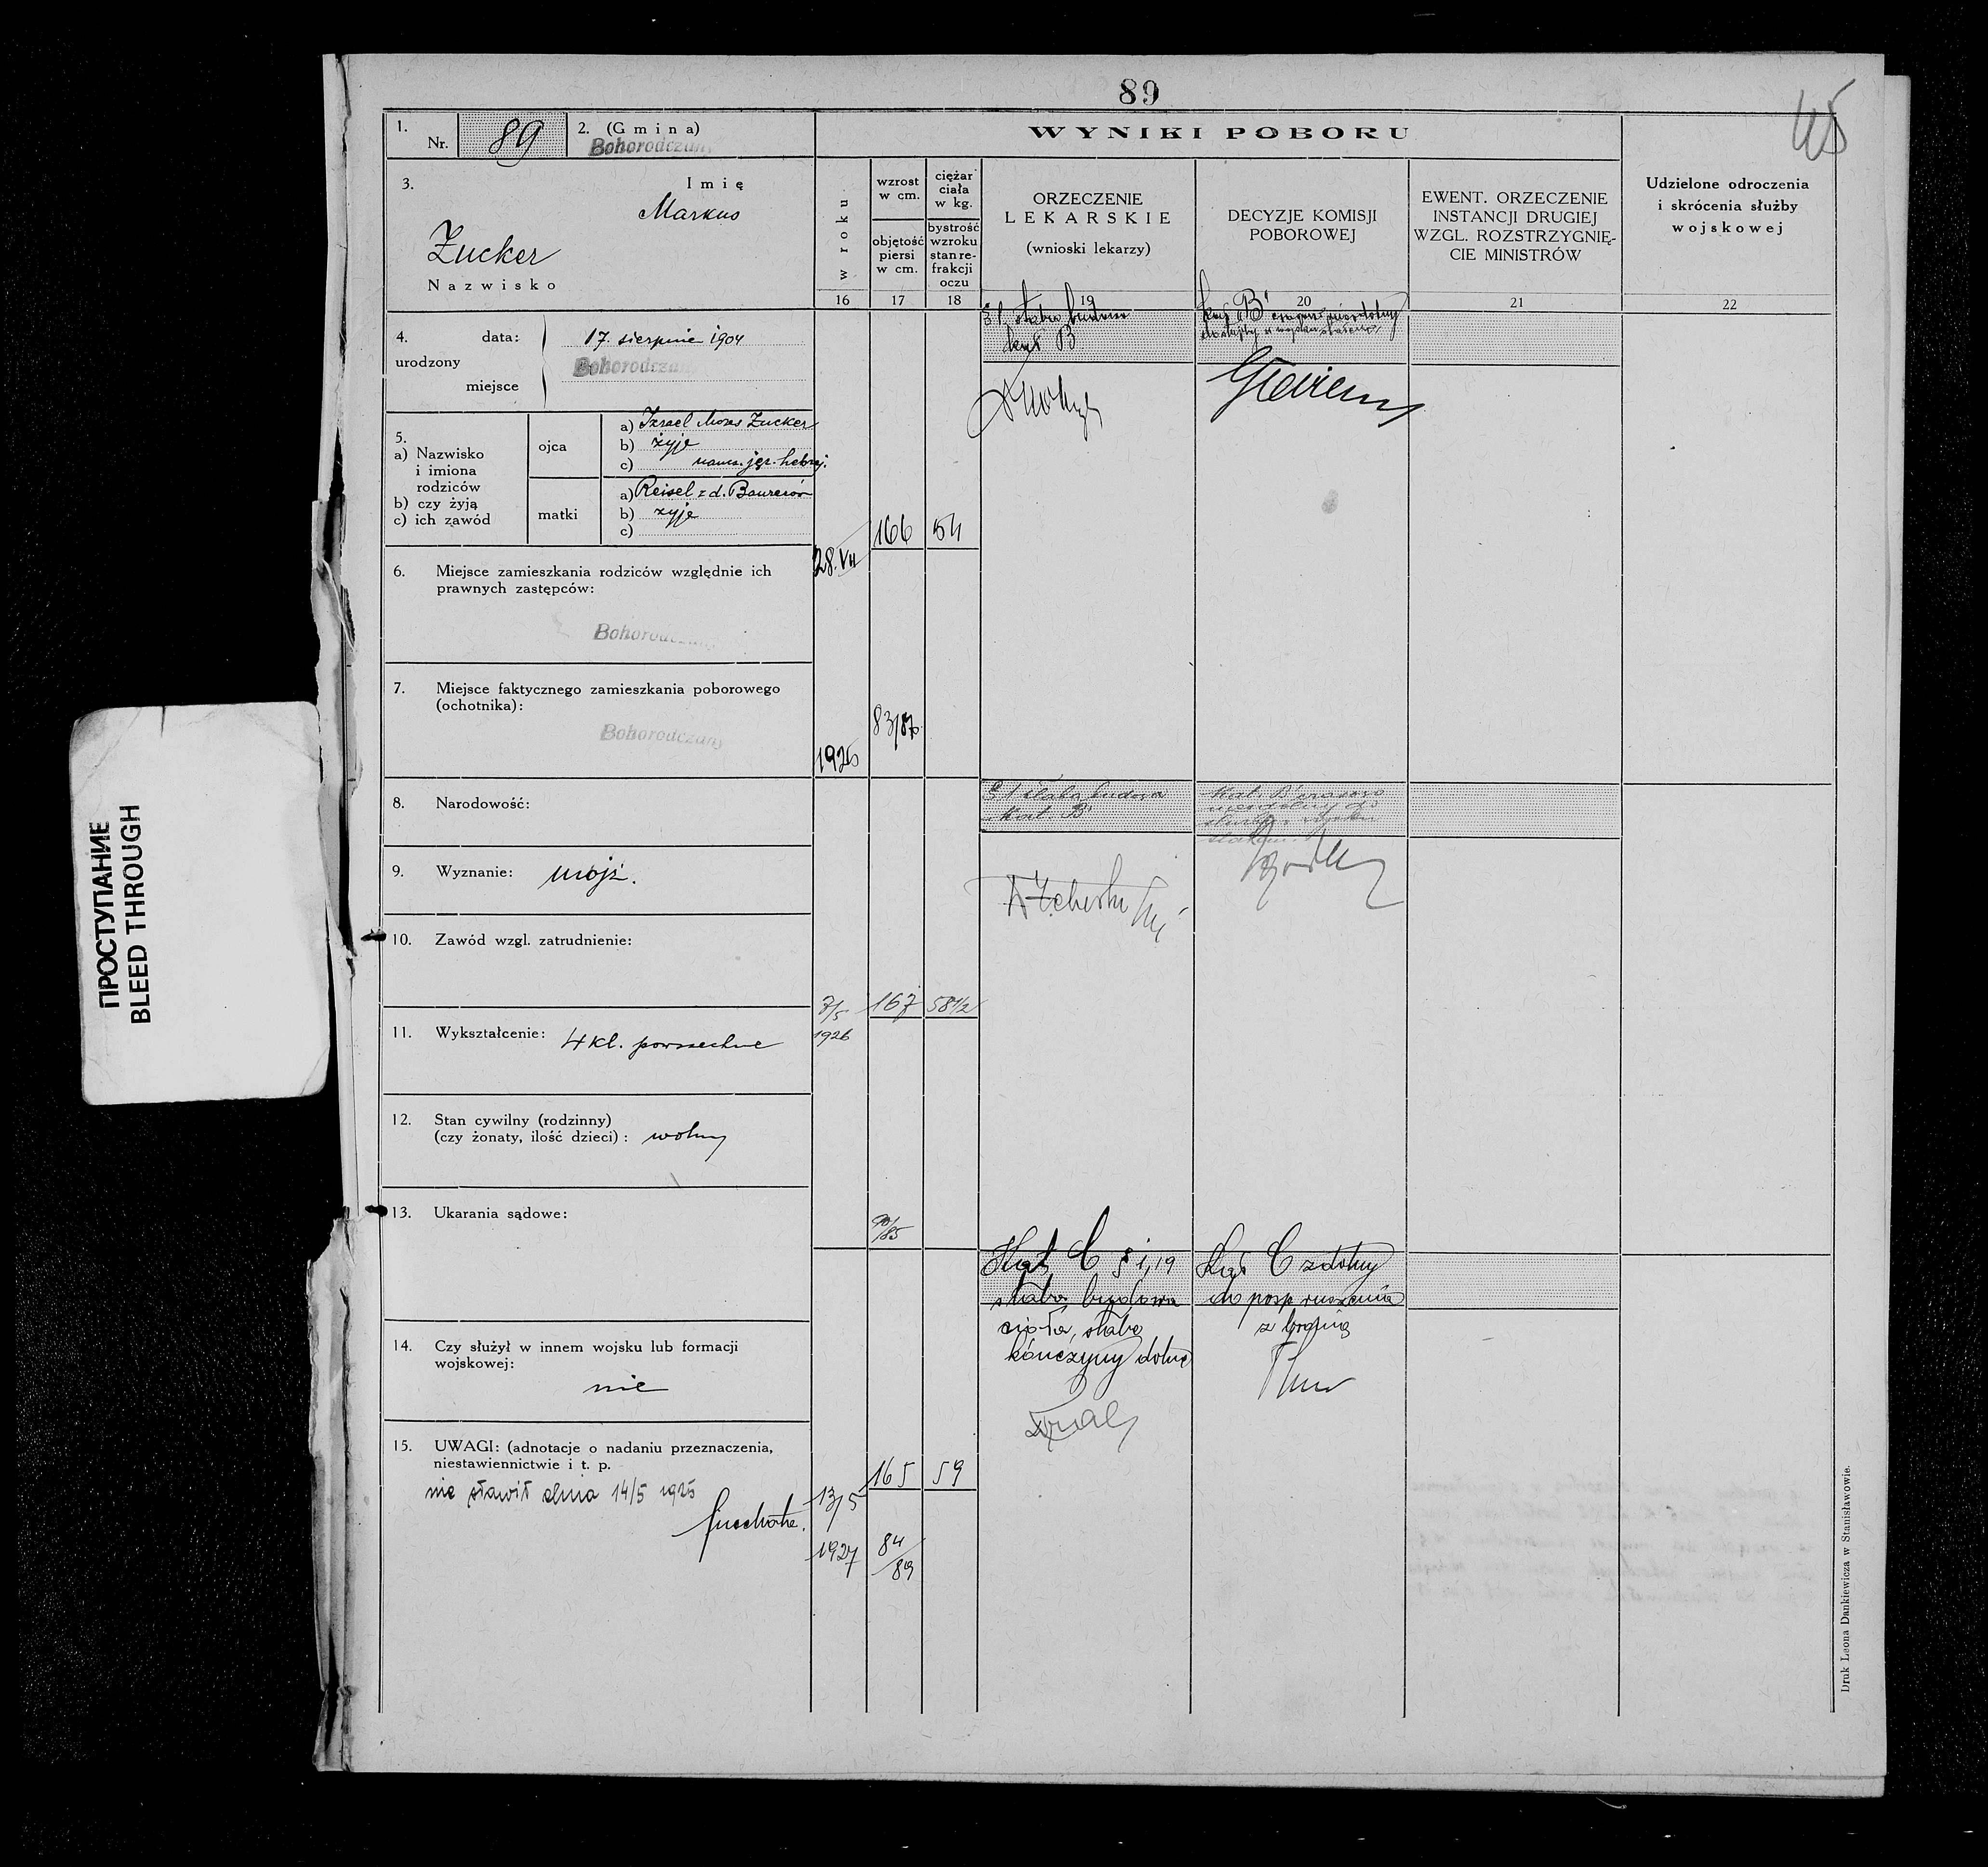 89
45
1.
Nr. 89
2. (Gmina)
Bohorodczany
WYNIKI POBORU
3.
Imię
Markus
Zucker
Nazwisko
w roku
wzrost
w cm.
objętość
piersi
w cm.
ciężar
ciała
w kg.
bystrość
wzroku
stan re-
frakcji
oczu
ORZECZENIE
LEKARSKIE
(wnioski lekarzy)
DECYZJE KOMISJI
POBOROWEJ
EWENT. ORZECZENIE
INSTANCJI DRUGIEJ
WZGL. ROZSTRZYGNIĘ-
CIE MINISTRÓW
Udzielone odroczenia
i skrócenia służby
wojskowej
16 17 18 19 20 21 22
4.
urodzony
data: 17. sierpnia 1904
miejsce Bohorodczany
5.
a) Nazwisko
i imiona
rodziców
b) czy żyją
c) ich zawód
ojca
a) Izrael Moses Zucker
b) żyje
c) naucz. jęz. hebraj.
matki
a) Reisel z d. Baurerów
b) żyje
c)
6. Miejsce zamieszkania rodziców względnie ich
prawnych zastępców:
Bohorodczany
7. Miejsce faktycznego zamieszkania poborowego
(ochotnika):
Bohorodczany
8. Narodowość:
9. Wyznanie: mojż.
10. Zawód wzgl. zatrudnienie:
11. Wykształcenie: 4 kl. powszechne
12. Stan cywilny (rodzinny)
(czy żonaty, ilość dzieci): wolny
13. Ukarania sądowe:
14. Czy służył w innem wojsku lub formacji
wojskowej:
nie
15. UWAGI: (adnotacje o nadaniu przeznaczenia,
niestawiennictwie i t. p.
nie stawił dnia 14/5 1925
28.VII
1925
166
54
83/87
słaba budowa
kat B
kat "B" czasowo niezdolny
7/5
1926
167
58 1/2
90/85
słaba budowa
Kat. B
Kat. B czasowo
niezdolny do
13/5
1927
165
59
84/89
Kat C § 1, 19
słaba budowa
ciała, słabe
kończyny dolne
Kat C zdolny
do posp. ruszenia
z bronią
Druk Leona Dankiewicza w Stanisławowie.
ПРОСТУПАНИЕ
BLEED THROUGH